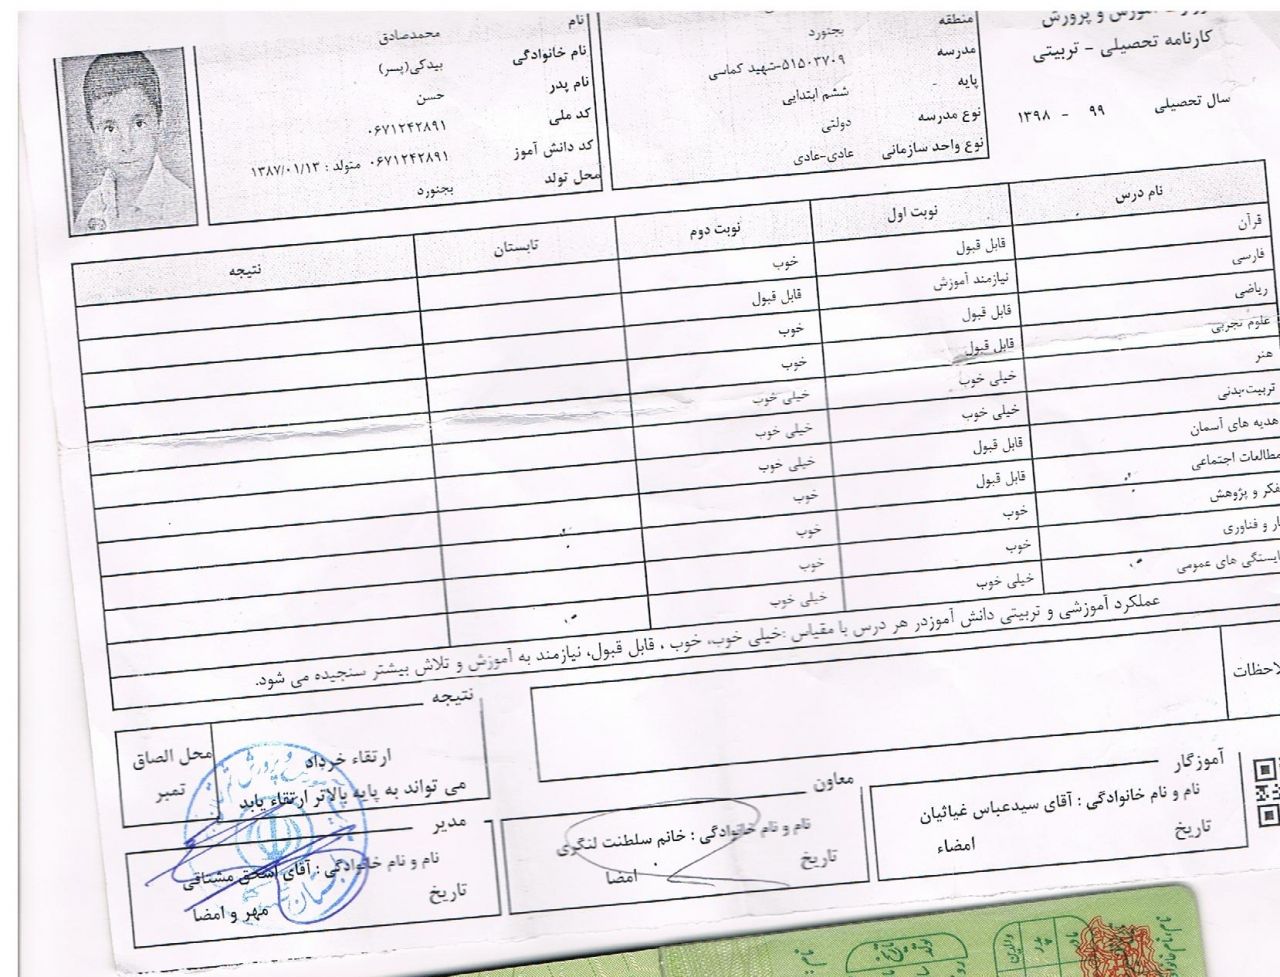 آموزش و پرورش
کارنامه تحصیلی - تربیتی
سال تحصیلی ۹۹ - ۱۳۹۸
منطقه بجنورد
مدرسه ۵۱۵۰۳۷۰۹-شهید کماسی
پایه - ششم ابتدایی
نوع مدرسه دولتی
نوع واحد سازمانی عادی-عادی
نام محمدصادق
نام خانوادگی بیدکی(پسر)
نام پدر حسن
کد ملی ۰۶۷۱۲۴۲۸۹۱
کد دانش آموز ۰۶۷۱۲۴۲۸۹۱ متولد : ۱۳۸۷/۰۱/۱۳
محل تولد بجنورد
نام درس نوبت اول نوبت دوم تابستان نتیجه
قرآن قابل قبول خوب
فارسی نیازمند آموزش قابل قبول
ریاضی قابل قبول خوب
علوم تجربی قابل قبول خوب
هنر خیلی خوب خیلی خوب
تربیت‌بدنی خیلی خوب خیلی خوب
هدیه های آسمان قابل قبول خیلی خوب
مطالعات اجتماعی قابل قبول خوب
فکر و پژوهش خوب خوب
ار و فناوری خوب خوب
ایستگی های عمومی خیلی خوب خیلی خوب
عملکرد آموزشی و تربیتی دانش آموزدر هر درس با مقیاس :خیلی خوب، خوب ، قابل قبول، نیازمند به آموزش و تلاش بیشتر سنجیده می شود.
لاحظات
نتیجه
ارتقاء خرداد
می تواند به پایه بالاتر ارتقاء یابد
محل الصاق
تمبر
آموزگار
نام و نام خانوادگی : آقای سیدعباس غیاثیان
تاریخ امضاء
معاون
نام و نام خانوادگی : خانم سلطنت لنگری
تاریخ امضا
مدیر
نام و نام خانوادگی : آقای اسحق مشتاقی
تاریخ مهر و امضا
نام :
تاریخ
تولد
نام،نام خانواد